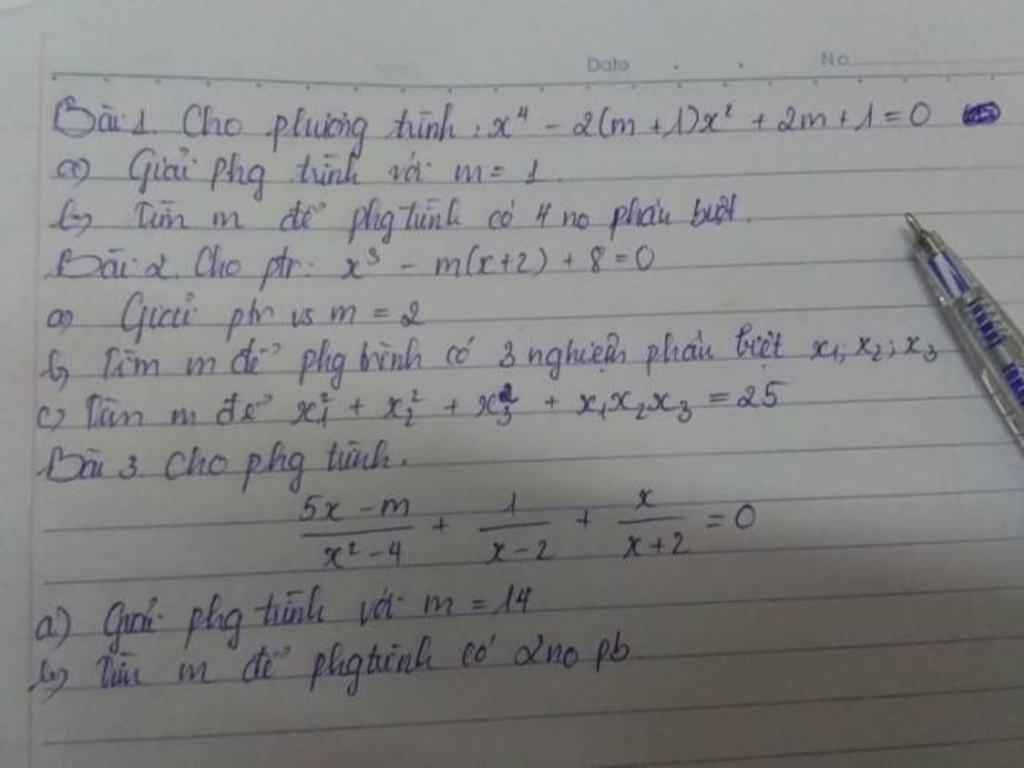 Date No
Bài 1. Cho phương trình: x⁴ - 2(m+1)x² + 2m+1=0
a) Giải phg trình với m=1.
b) Tìm m để phg trình có 4 no phân biệt.
Bài 2. Cho ptr: x³ - m(x+2) + 8=0
a) Giải ptr vs m = 2
b) Tìm m để phg trình có 3 nghiệm phân biệt x₁; x₂; x₃
c) Tìm m để x₁² + x₂² + x₃² + x₁x₂x₃ = 25
Bài 3. Cho phg trình.
(5x - m)/(x² - 4) + 1/(x - 2) + x/(x + 2) = 0
a) Giải phg trình với m = 14
b) Tìm m để phg trình có 2 no pb